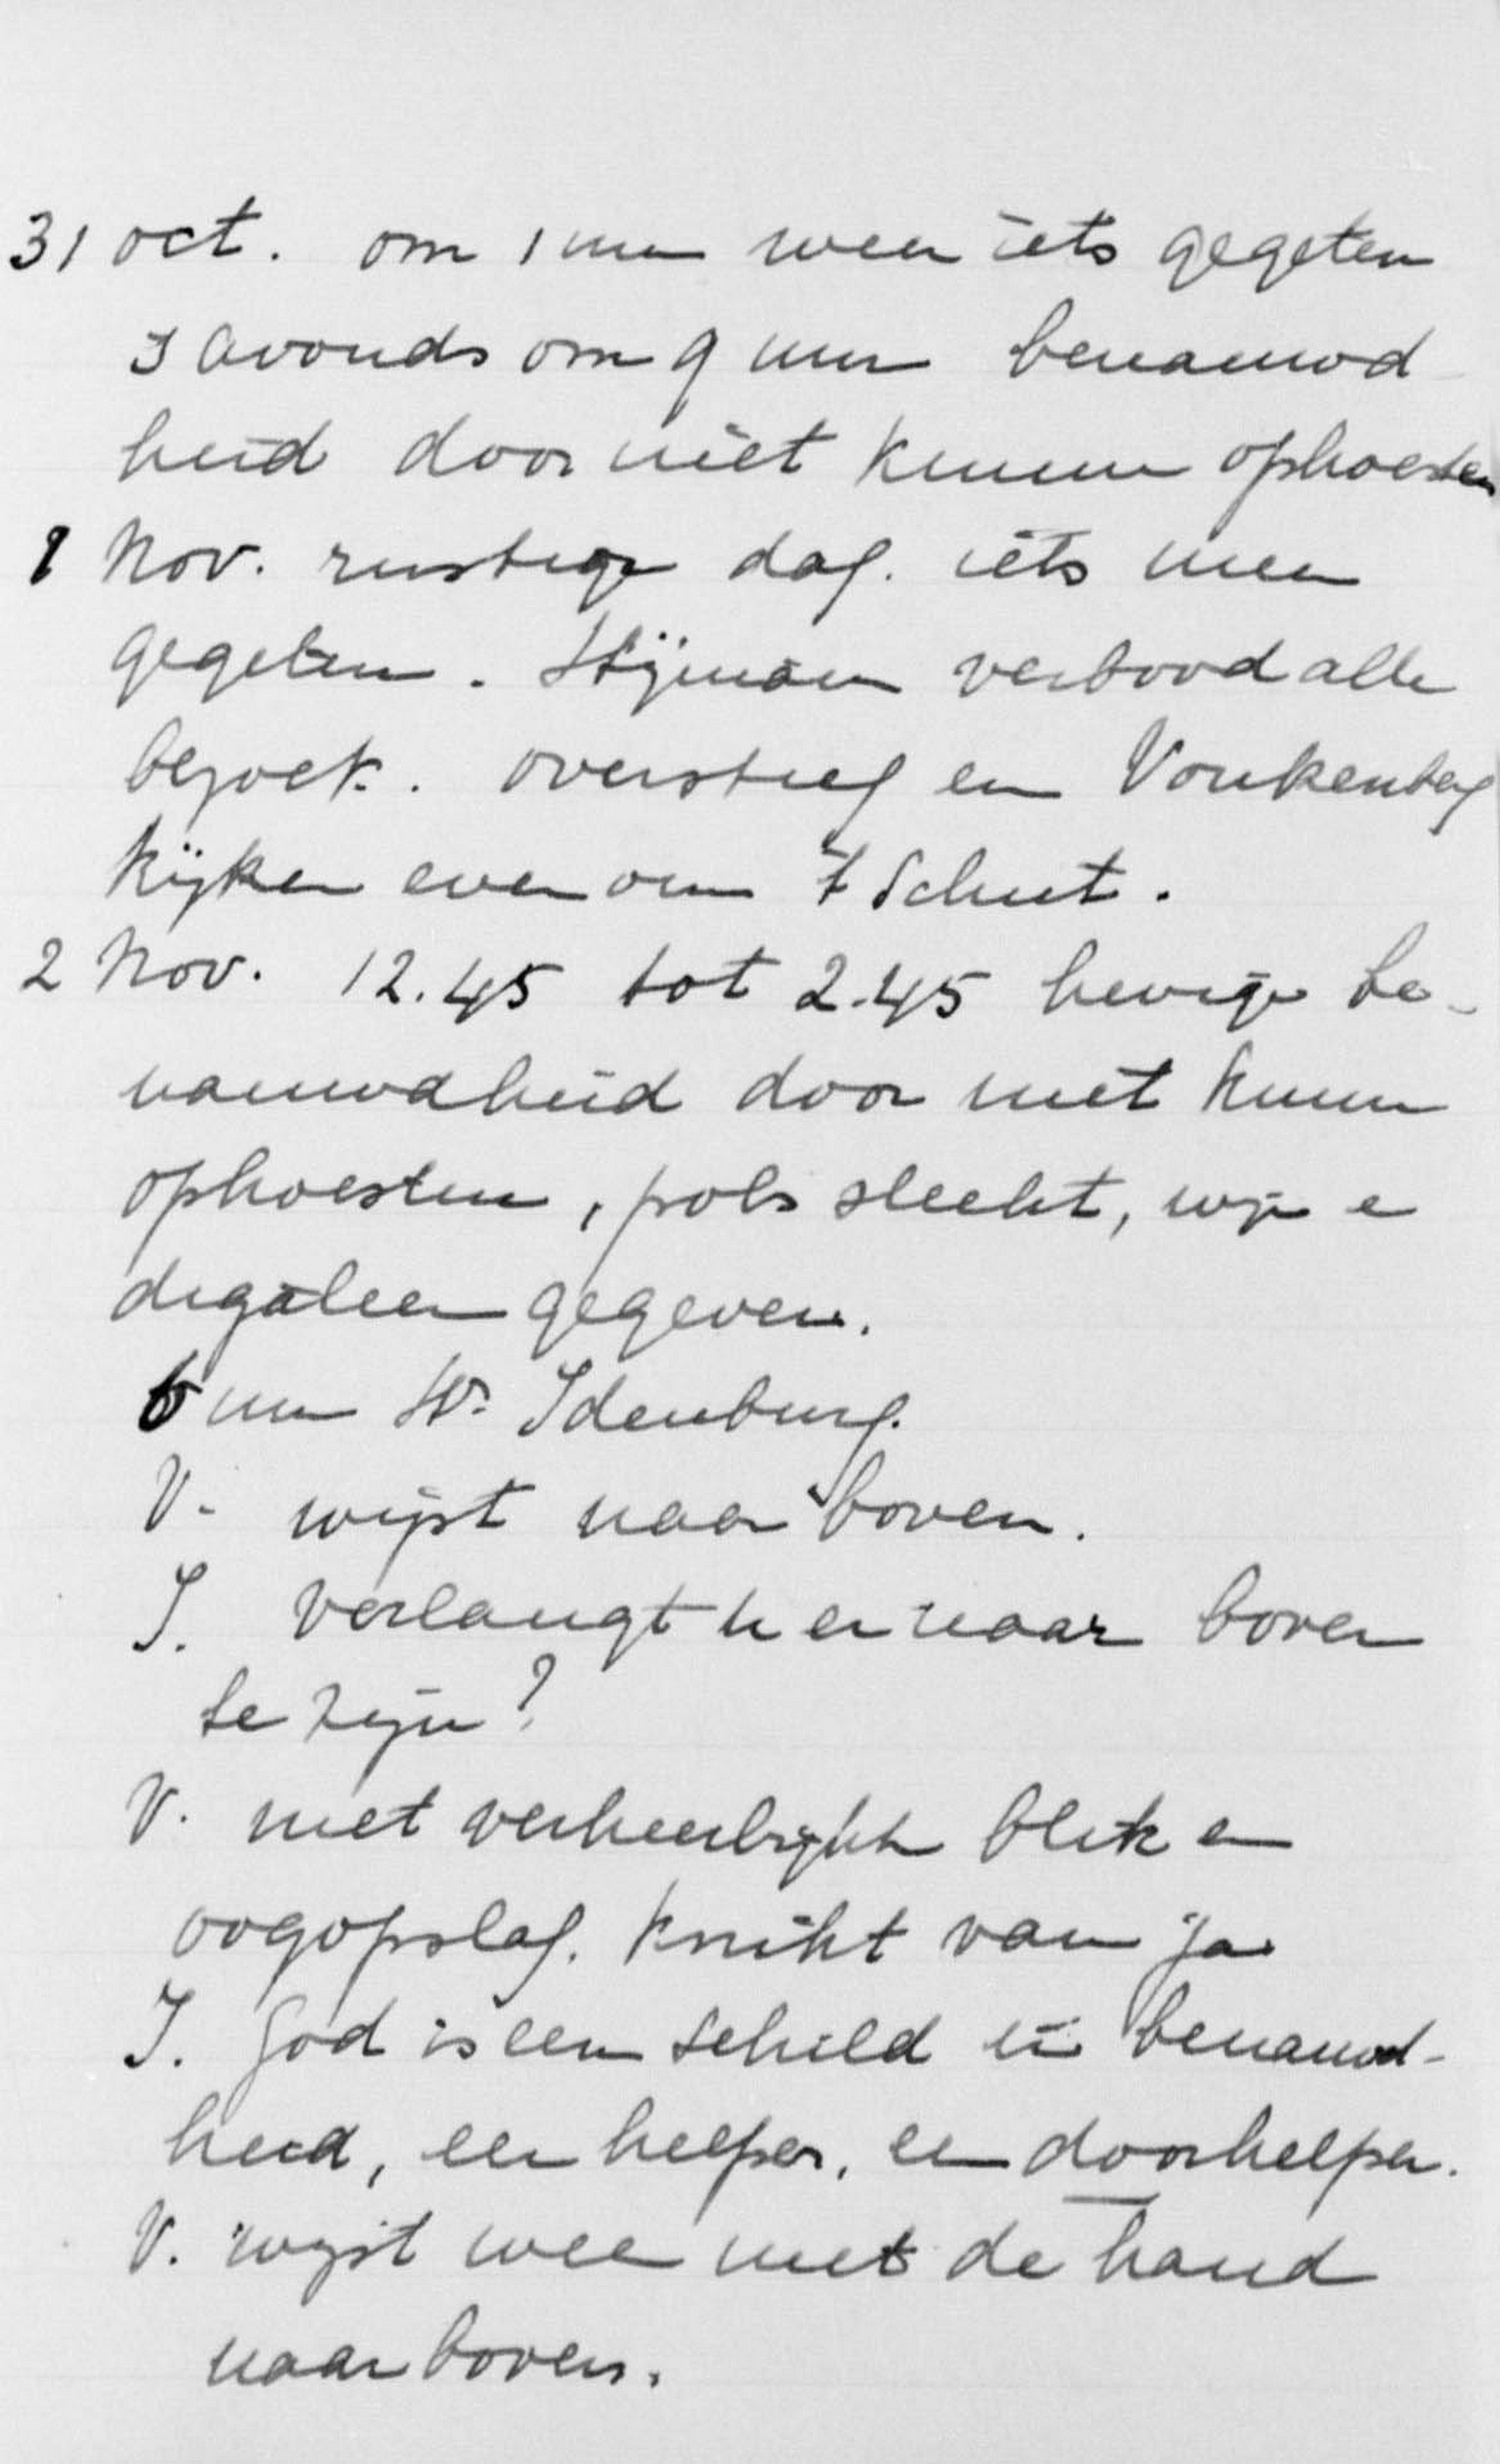 31 oct. om 1 uur weer iets gegeten
s avonds om 9 uur benauwd
heid door niet kunnen ophoesten
1 Nov. rustige dag. iets meer
gegeten. Stijman verbood alle
bezoek. Oversteeg en Vonkenberg
kijken even om 't Schut.
2 Nov. 12.45 tot 2.45 hevige be-
nauwdheid door niet kunnen
ophoesten, pols slecht, wijn en
digaleen gegeven.
6 uur Hr. Idenburg.
V. wijst naar boven.
I. verlangt U er naar boven
te zijn?
V. met verheerlijkte blik en
oogopslag. Knikt van ja
I. God is een schild in benauwd-
heid, een helper, een doorhelper.
V. wijst weer met de hand
naar boven.